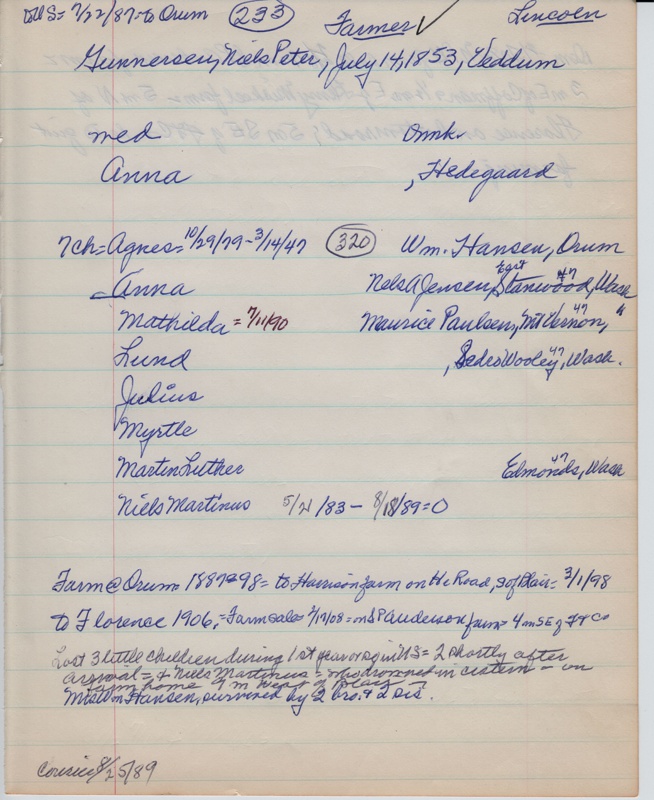 to US = 7/22/87 = to Orum (233) Farmer ✓ Lincoln
Gunnersen, Niels Peter, July 14, 1853, Veddum
med Dmk.
Anna , Hedegaard
7ch = Agnes = 10/29/79 - 3/14/47 (320) Wm. Hansen, Orum
Anna Nels A Jensen, Stanwood, Wash 47
Mathilda = 7/11/90 Maurice Paulsen, Mt Vernon, " 47
Lund , Sedro Wooley, Wash. 47
Julius
Myrtle
Martin Luther Edmonds, Wash 47
Niels Martinus 5/21/83 - 8/18/89 = O
Farm @ Orum = 1887-98 = to Harrison farm on Road, S of Blair = 3/1/98
to Florence 1906, = Farm sale = 2/17/08 = on S P Anderson farm = 4 m SE of
Lost 3 little children during 1st year or so in US = 2 shortly after
arrival = + Niels Martinus = who drowned in cistern = on
farm home 9 m West of Blair
Mrs Wm Hansen, survived by 2 bro. + 2 sis.
Courier 8/25/89